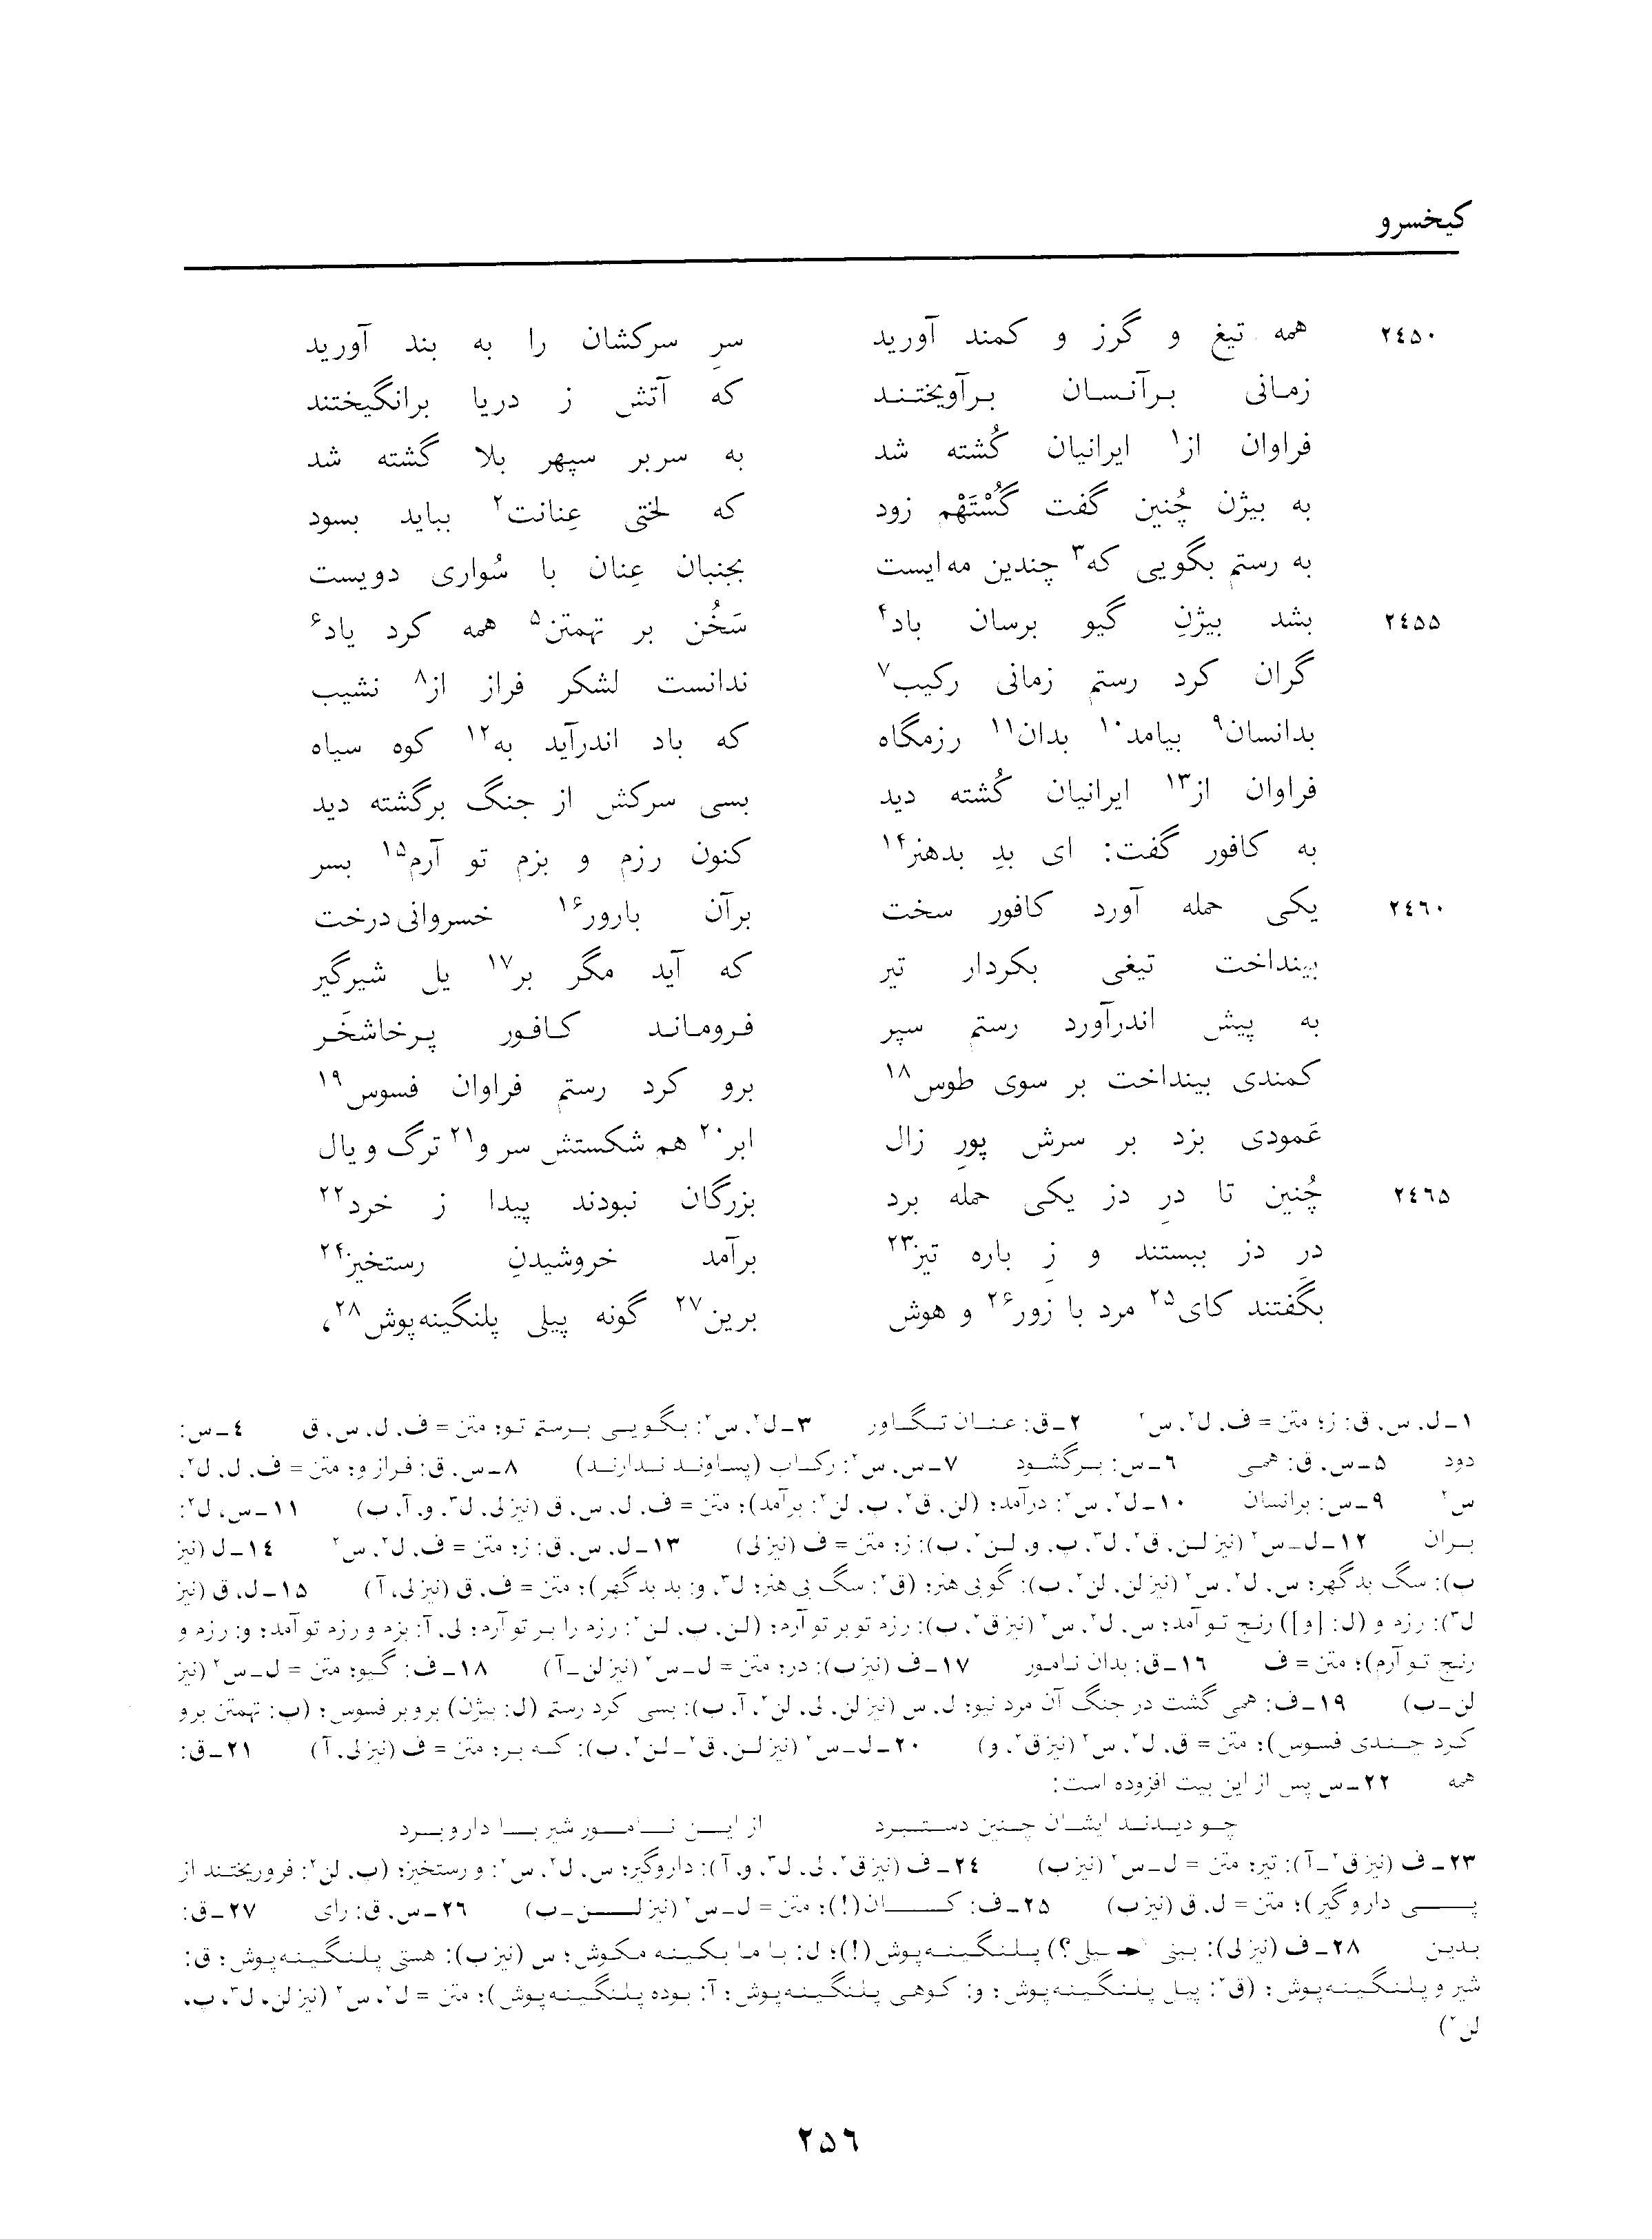 کیخسرو
۲٤۵۰ همه تیغ و گرز و کمند آورید سرِ سرکشان را به بند آورید
زمانی برآنسان برآویختند که آتش ز دریا برانگیختند
فراوان از۱ ایرانیان کُشته شد به سربر سپهر بلا گشته شد
به بیژن چُنین گفت گُسْتَهْم زود که لختی عِنانت۲ بباید بسود
به رستم بگویی که۳ چندین مه‌ایست بجنبان عِنان با سُواری دویست
۲٤۵۵ بشد بیژنِ گیو برسان باد۴ سَخُن بر تهمتن۵ همه کرد یاد۶
گران کرد رستم زمانی رکیب۷ ندانست لشکر فراز از۸ نشیب
بدانسان۹ بیامد۱۰ بدان۱۱ رزمگاه که باد اندرآید به۱۲ کوه سیاه
فراوان از۱۳ ایرانیان کُشته دید بسی سرکش از جنگ برگشته دید
به کافور گفت: ای بدِ بدهنر۱۴ کنون رزم و بزم تو آرم۱۵ بسر
۲٤٦۰ یکی حمله آورد کافور سخت برآن بارور۱۶ خسروانی‌درخت
بینداخت تیغی بکردار تیر که آید مگر بر۱۷ یل شیرگیر
به پیش اندرآورد رستم سپر فروماند کافور پرخاشخَر
کمندی بینداخت بر سوی طوس۱۸ برو کرد رستم فراوان فسوس۱۹
عَمودی بزد بر سرش پورِ زال ابر۲۰ هم شکستش سر و۲۱ ترگ و یال
۲٤٦۵ چُنین تا درِ دز یکی حمله برد بزرگان نبودند پیدا ز خرد۲۲
درِ دز ببستند و زِ باره تیز۲۳ برآمد خروشیدنِ رستخیز۲۴
بگفتند کای۲۵ مرد با زور۲۶ و هوش برین۲۷ گونه پیلی پلنگینه‌پوش۲۸،
۱ـ ل، س، ق: ز؛ متن = ف، ل۲، س۲ ۲ـ ق: عنان تگاور ۳ـ ل۲، س۲: بگویی برستم تو؛ متن = ف، ل، س، ق ٤ـ س:
دود ۵ـ س، ق: همی ٦ـ س: برگشود ۷ـ س، س۲: رکاب (پساوند ندارند) ۸ـ س، ق: فراز و؛ متن = ف، ل، ل۲،
س۲ ۹ـ س: برانسان ۱۰ـ ل۲، س۲: درآمد؛ (لن، ق۲، ب، لن۲: برآمد)؛ متن = ف، ل، س، ق (نیز لی، ل۳، و، آ، ب) ۱۱ـ س، ل۲:
بران ۱۲ـ ل‌ـ س۲ (نیز لن، ق۲، ل۳، پ، و، لن۲، ب): ز؛ متن = ف (نیز لی) ۱۳ـ ل، س، ق: ز؛ متن = ف، ل۲، س۲ ۱٤ـ ل (نیز
ب): سگ بدگهر؛ س، ل۲، س۲ (نیز لن، لن۲، ب): گو بی هنر؛ (ق۲: سگ بی هنر؛ ل۳، و: بد بدگهر)؛ متن = ف، ق (نیز لی، آ) ۱۵ـ ل، ق (نیز
ل۳): رزم و (ل: [و]) رنج تو آمد؛ س، ل۲، س۲ (نیز ق۲، ب): رزم تو بر تو آرم؛ (لن، پ، لن۲: رزم را بر تو آرم؛ لی، آ: بزم و رزم تو آمد؛ و: رزم و
رنج تو آرم)؛ متن = ف ۱٦ـ ق: بدان نامور ۱۷ـ ف (نیز ب): در؛ متن = ل‌ـ س۲ (نیز لن‌ـ آ) ۱۸ـ ف: گیو؛ متن = ل‌ـ س۲ (نیز
لن‌ـ ب) ۱۹ـ ف: همی گشت در جنگ آن مرد نیو؛ ل، س (نیز لن، لی، لن۲، آ، ب): بسی کرد رستم (ل: بیژن) برو بر فسوس؛ (پ: تهمتن برو
کرد چندی فسوس)؛ متن = ق، ل۲، س۲ (نیز ق۲، و) ۲۰ـ ل‌ـ س۲ (نیز لن، ق۲ـ لن۲، ب): که بر؛ متن = ف (نیز لی، آ) ۲۱ـ ق:
همه ۲۲ـ س پس از این بیت افزوده است:
چو دیدند ایشان چنین دستبرد از این نامور شیر با دار و برد
۲۳ـ ف (نیز ق۲ـ آ): تیر؛ متن = ل‌ـ س۲ (نیز ب) ۲٤ـ ف (نیز ق۲، لی، ل۳، و، آ): داروگیر؛ س، ل۲، س۲: و رستخیز؛ (پ، لن۲: فروریختند از
پی داروگیر)؛ متن = ل، ق (نیز ب) ۲۵ـ ف: کان(!)؛ متن = ل‌ـ س۲ (نیز لن‌ـ ب) ۲٦ـ س، ق: رای ۲۷ـ ق:
بدین ۲۸ـ ف (نیز لی): بینی (← پیلی؟) پلنگینه‌پوش(!)؛ ل: با ما بکینه مکوش؛ س (نیز ب): هستی پلنگینه‌پوش؛ ق:
شیر و پلنگینه‌پوش؛ (ق۲: پیل پلنگینه‌پوش؛ و: کوهی پلنگینه‌پوش؛ آ: بوده پلنگینه‌پوش)؛ متن = ل۲، س۲ (نیز لن، ل۳، پ،
لن۲)
۲۵٦